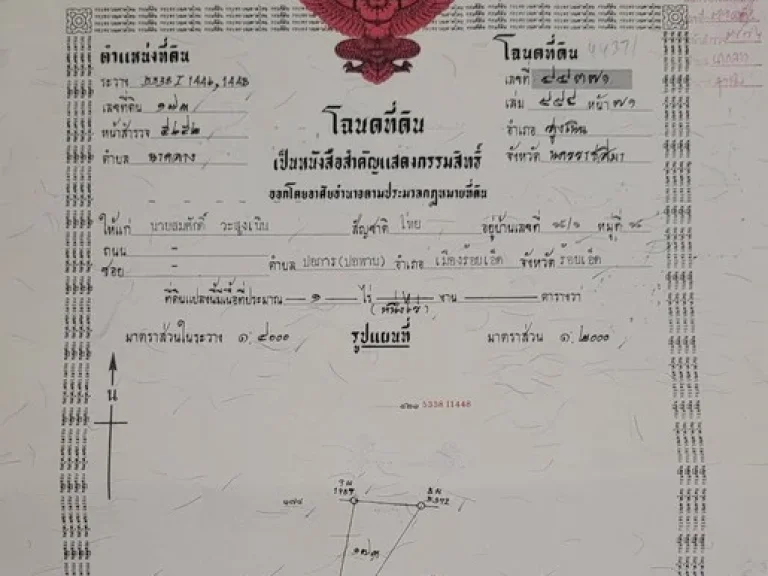 ตำแหน่งที่ดิน
ระวาง 5338 I 1446,1448
เลขที่ดิน ๑๗๓
หน้าสำรวจ ๕๔๕๒
ตำบล นากลาง
โฉนดที่ดิน 44371
เลขที่ ๔๔๓๗๑
เล่ม ๔๔๔ หน้า ๗๑
อำเภอ สูงเนิน
จังหวัด นครราชสีมา
โฉนดที่ดิน
เป็นหนังสือสำคัญแสดงกรรมสิทธิ์
ออกโดยอาศัยอำนาจตามประมวลกฎหมายที่ดิน
ให้แก่ นายสมศักดิ์ วะสูงเนิน สัญชาติ ไทย อยู่บ้านเลขที่ หมู่ที่
ถนน -
ซอย - ตำบล ปอภาร(ปอพาน) อำเภอ เมืองร้อยเอ็ด จังหวัด ร้อยเอ็ด
ที่ดินแปลงนี้มีเนื้อที่ประมาณ ๑ ไร่ งาน ตารางวา
(หนึ่งไร่)
มาตราส่วนในระวาง ๑:๔๐๐๐ รูปแผนที่ มาตราส่วน ๑:๒๐๐๐
น
5338 I1448
๑๗๓